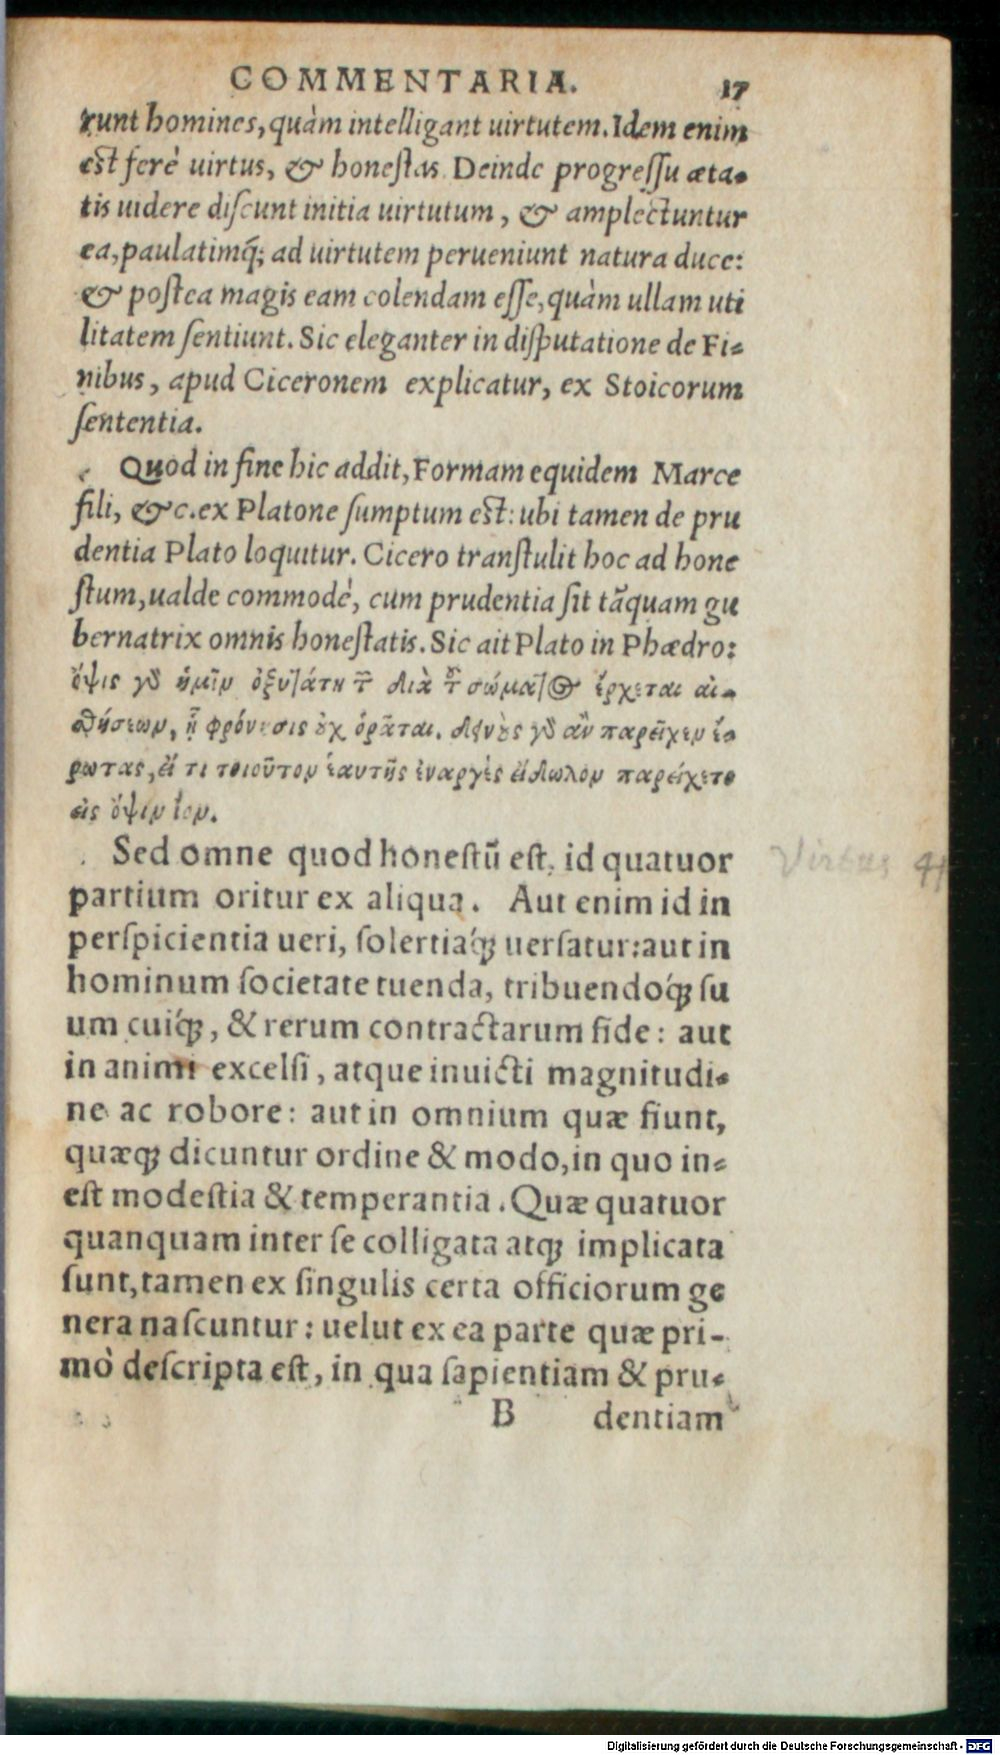 COMMENTARIA. 17
runt homines, quàm intelligant uirtutem. Idem enim
est ferè uirtus, & honestas. Deinde progressu æta-
tis uidere discunt initia uirtutum, & amplectuntur
ea, paulatimq́; ad uirtutem perueniunt natura duce:
& postea magis eam colendam esse, quàm ullam uti
litatem sentiunt. Sic eleganter in disputatione de Fi-
nibus, apud Ciceronem explicatur, ex Stoicorum
sententia.
Quod in fine hic addit, Formam equidem Marce
fili, &c. ex Platone sumptum est: ubi tamen de pru
dentia Plato loquitur. Cicero transtulit hoc ad hone
stum, ualde commodè, cum prudentia sit tãquam gu
bernatrix omnis honestatis. Sic ait Plato in Phædro:
ὄψις γὸ ἡμῖν ὀξυτάτη τ̃ διὰ τ̃ σώματος ἔρχεται αἰ-
σθήσεων, ᾗ φρόνησις οὐχ ὁρᾶται. δεινοὺς γὸ ἂν παρεῖχεν ἔ-
ρωτας, εἴ τι τοιοῦτον ἑαυτῆς ἐναργὲς εἴδωλον παρείχετο
εἰς ὄψιν ἰόν.
Sed omne quod honestũ est, id quatuor
partium oritur ex aliqua. Aut enim id in
perspicientia ueri, solertiaq́; uersatur: aut in
hominum societate tuenda, tribuendoq́; su
um cuiq́;, & rerum contractarum fide: aut
in animi excelsi, atque inuicti magnitudi-
ne ac robore: aut in omnium quæ fiunt,
quæq; dicuntur ordine & modo, in quo in-
est modestia & temperantia. Quæ quatuor
quanquam inter se colligata atq; implicata
sunt, tamen ex singulis certa officiorum ge
nera nascuntur: uelut ex ea parte quæ pri-
mò descripta est, in qua sapientiam & pru-
B dentiam
Virtus 4
Digitalisierung gefördert durch die Deutsche Forschungsgemeinschaft - DFG